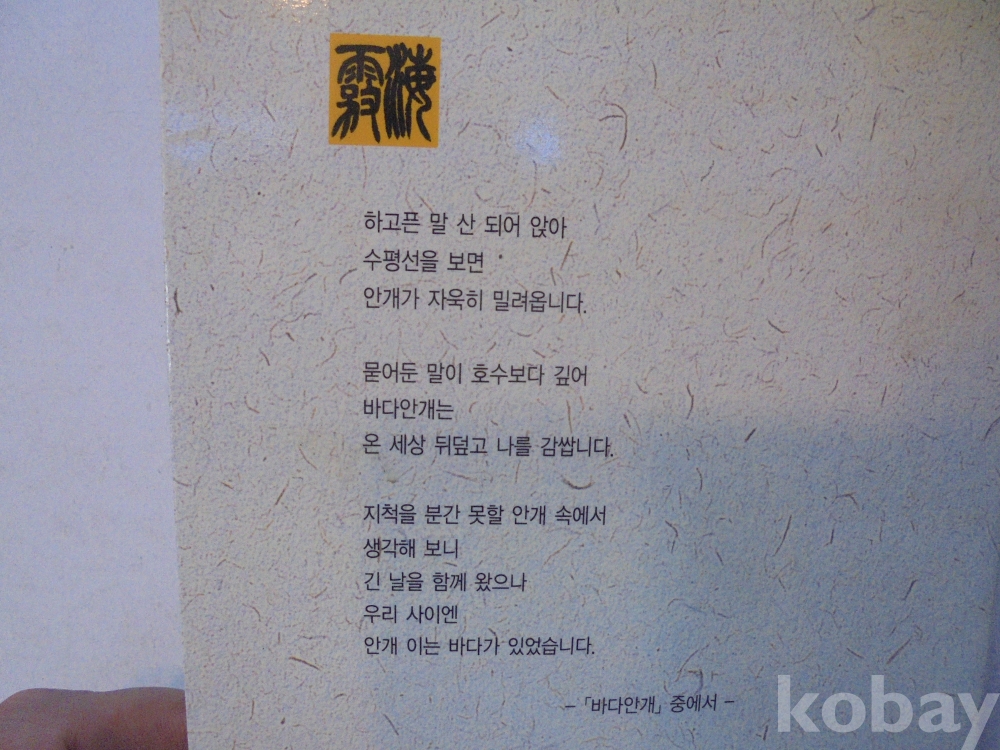 海霧
하고픈 말 산 되어 앉아
수평선을 보면
안개가 자욱히 밀려옵니다.
묻어둔 말이 호수보다 깊어
바다안개는
온 세상 뒤덮고 나를 감쌉니다.
지척을 분간 못할 안개 속에서
생각해 보니
긴 날을 함께 왔으나
우리 사이엔
안개 이는 바다가 있었습니다.
–「바다안개」중에서 –
kobay